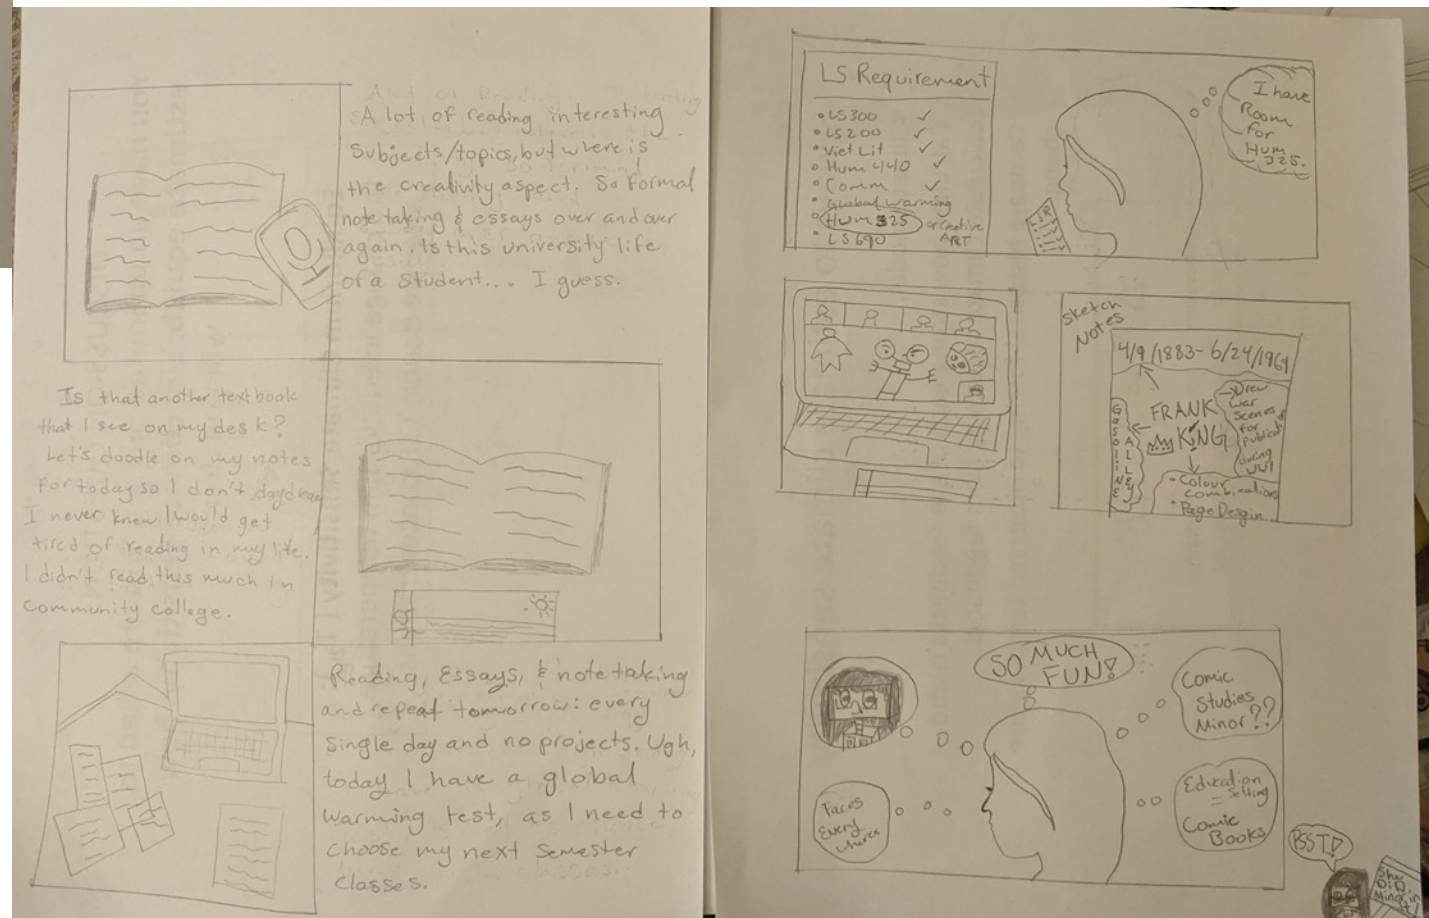 A lot of reading interesting
Subjects/topics, but where is
the creativity aspect. So formal
note taking & essays over and over
again. Is this university life
of a student... I guess.
Is that another textbook
that I see on my desk?
Let's doodle on my notes
for today so I don't daydream
I never knew I would get
tired of reading in my life.
I didn't read this much in
Community college.
Reading, Essays, & note taking
and repeat tomorrow: every
single day and no projects. Ugh,
today I have a global
warming test, as I need to
choose my next semester
classes.
LS Requirement
• LS300 ✓
• LS200 ✓
• Viet Lit ✓
• Hum 440 ✓
• Comm ✓
• Global warming
• Hum 325 or Creative
ART
• LS690
I have
Room
for
Hum
325.
Sketch
Notes
4/9/1883- 6/24/1969
FRANK
KING
GasoliNE
ALLEY
Drew
war
Scenes
for
during
WWI
• Colour
combinations
• Page Desgin
SO MUCH
FUN!
Comic
Studies
Minor??
Faces
Every
where
Education
= Setting
Comic
Books
PSST!
She
DiD
Minor in